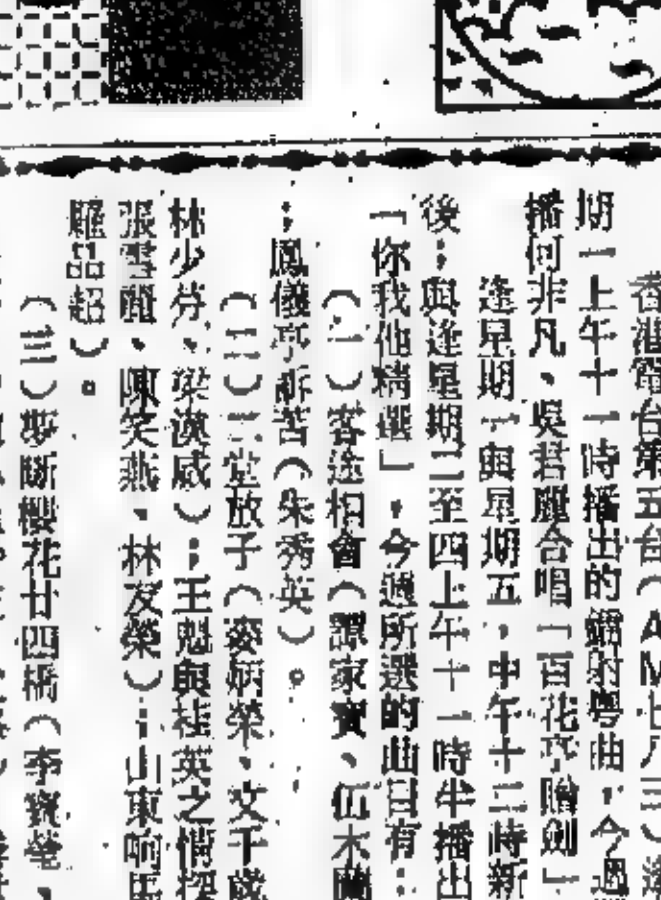 香港電台第五台（AM七八三）逢
期一上午十一時播出的鐳射粵曲，今週
播何非凡、吳若麗合唱「百花亭贈劍」
逢星期一與星期五，中午十二時新
後；與逢星期二至四上午十一時半播出
「你我他精選」，今週所選的曲目有：
（一）客途相會（譚家寶、伍木蘭
；鳳儀亭訴苦（朱秀英）。
（二）三堂放子（姿炳榮、文千歲
林少芬、梁漢威）；王魁與桂英之情探
張雪麗、陳笑燕、林友榮）；山東响馬
羅品超）。
（三）夢斷櫻花廿四橋（李寶瑩、